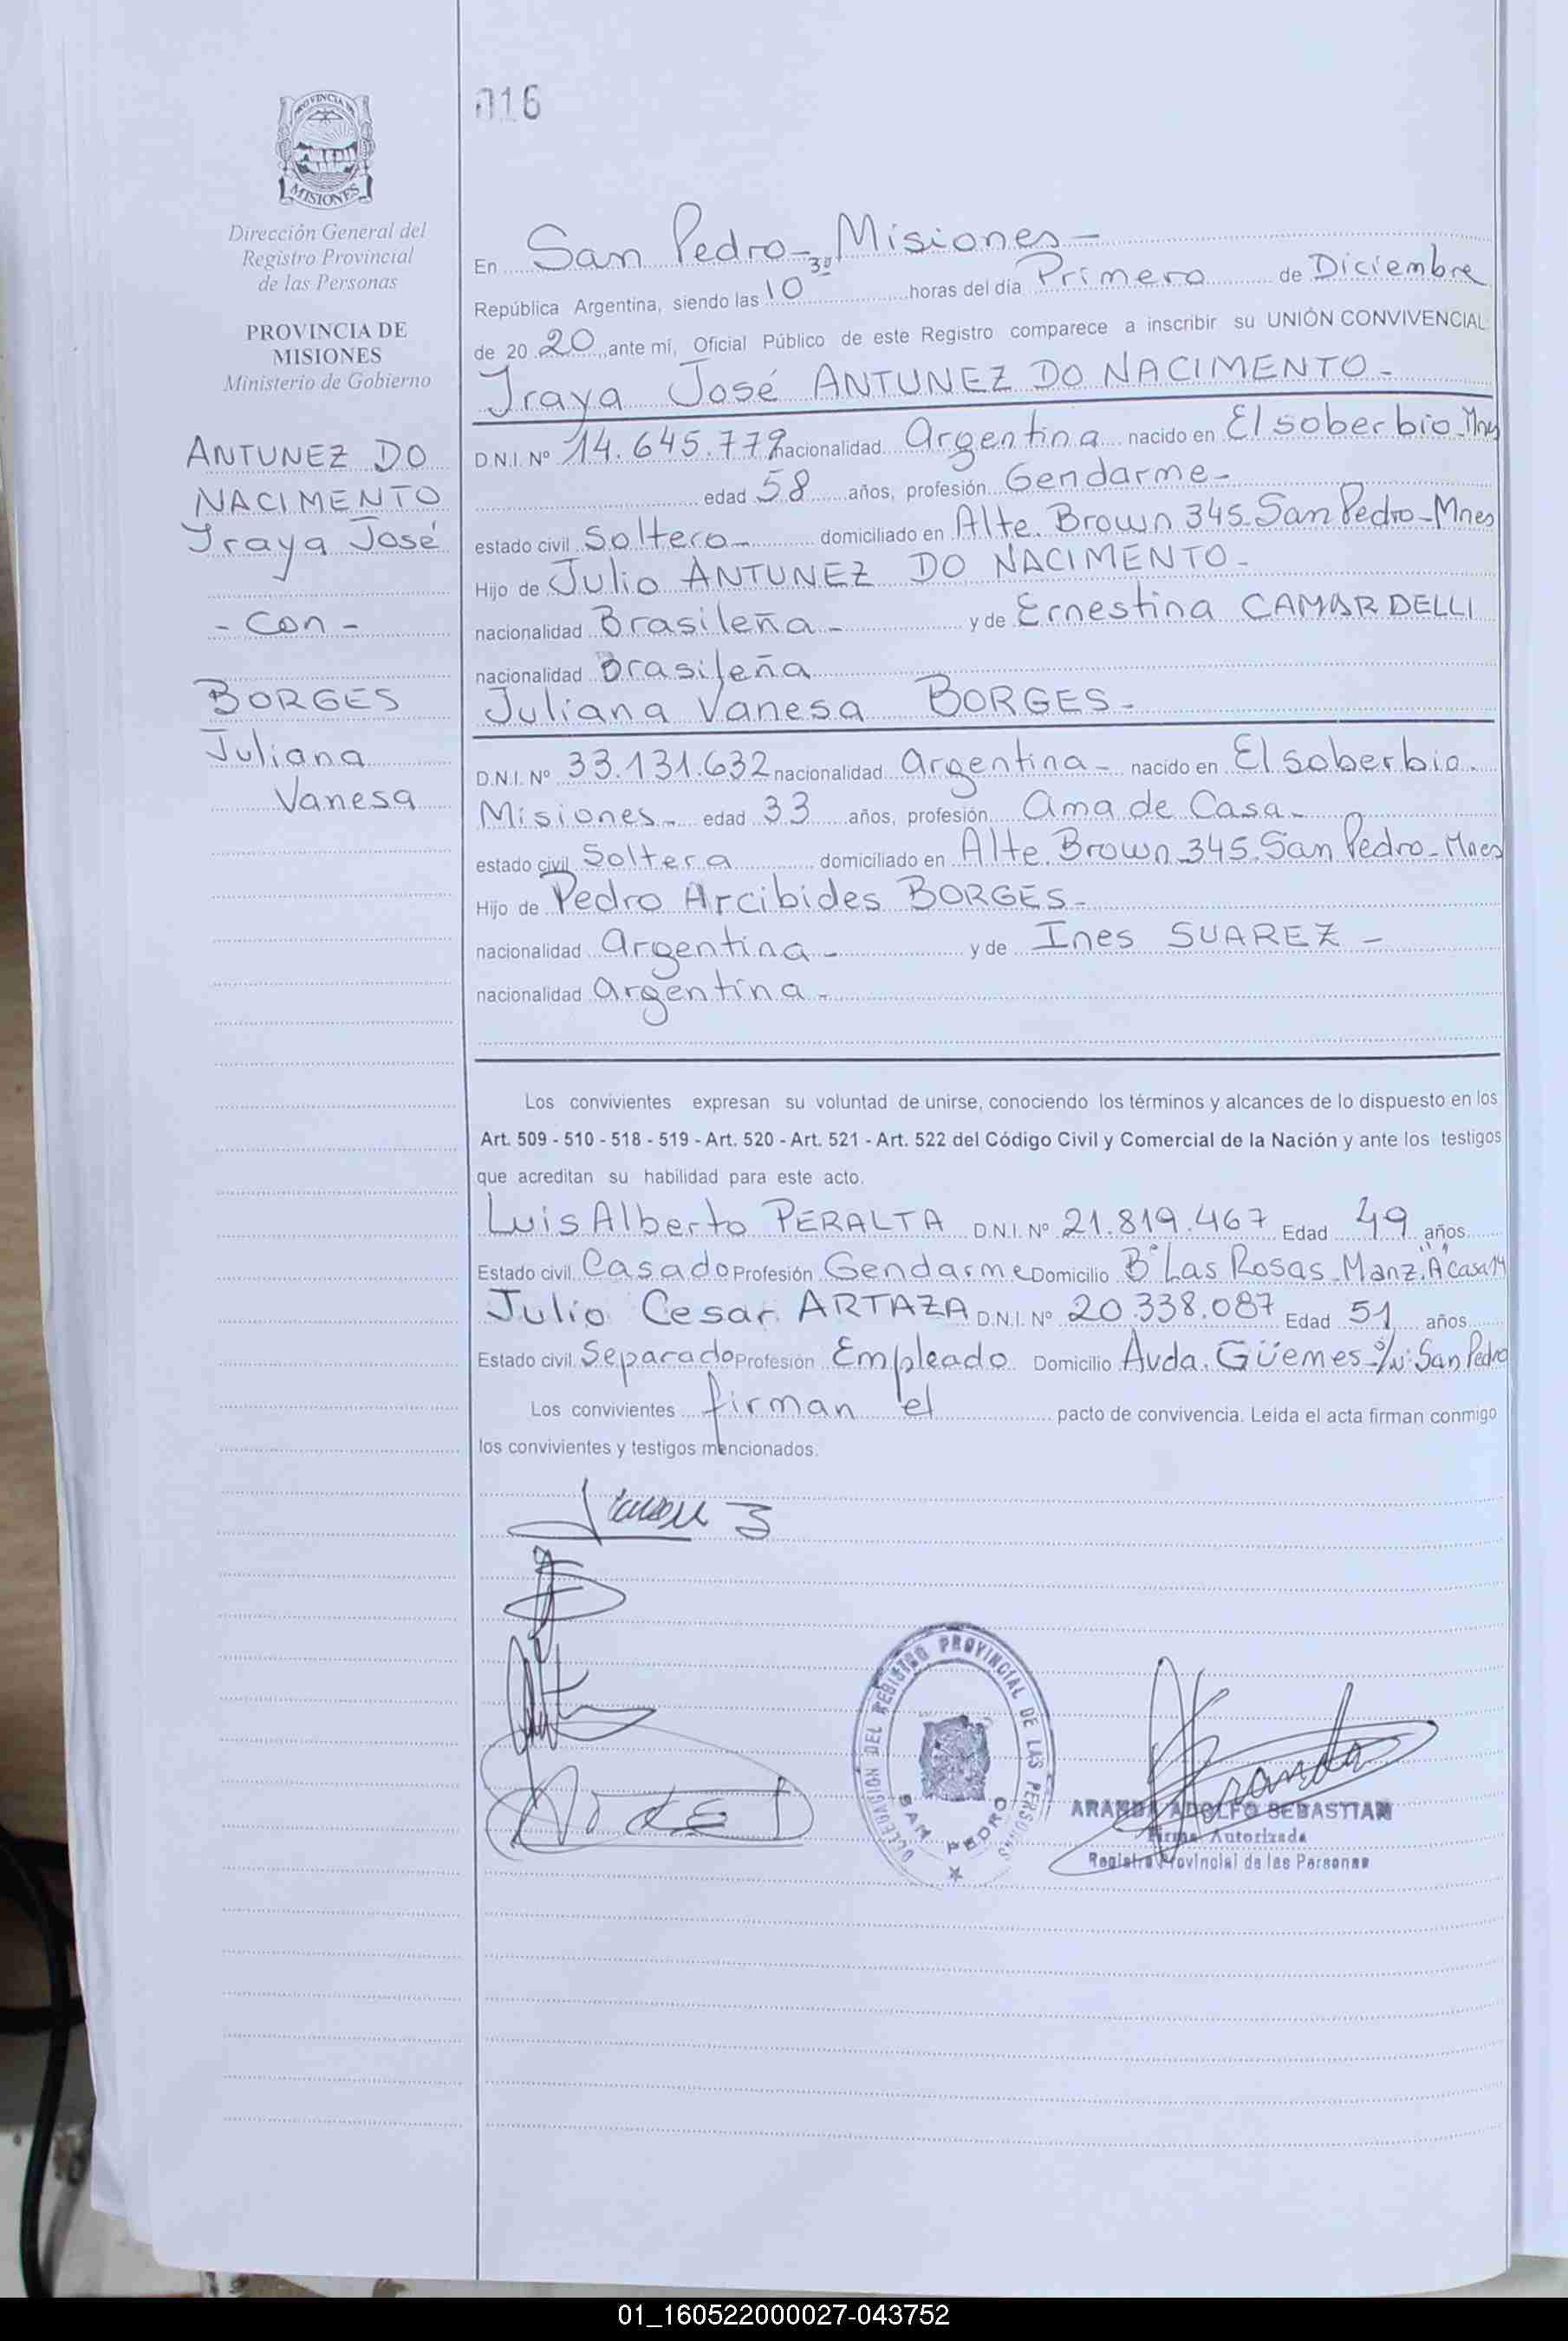 016
PROVINCIA DE
MISIONES
Dirección General del
Registro Provincial
de las Personas
PROVINCIA DE
MISIONES
Ministerio de Gobierno
ANTUNEZ DO
NACIMENTO
Iraya José
- Con -
BORGES
Juliana
Vanesa
En San Pedro - Misiones -
República Argentina, siendo las 10 30 horas del día Primero de Diciembre
de 20 20, ante mí, Oficial Público de este Registro comparece a inscribir su UNIÓN CONVIVENCIAL
Iraya José ANTUNEZ DO NACIMENTO -
D.N.I. Nº 14.645.779 nacionalidad Argentina nacido en El soberbio - Mnes
edad 58 años, profesión Gendarme -
estado civil Soltero - domiciliado en Alte. Brown 345 - San Pedro - Mnes
Hijo de Julio ANTUNEZ DO NACIMENTO -
nacionalidad Brasileña - y de Ernestina CAMARDELLI
nacionalidad Brasileña
Juliana Vanesa BORGES -
D.N.I. Nº 33.131.632 nacionalidad Argentina - nacido en El soberbio -
Misiones - edad 33 años, profesión Ama de Casa -
estado civil Soltera domiciliado en Alte. Brown 345 - San Pedro - Mnes
Hijo de Pedro Arcibides BORGES -
nacionalidad Argentina - y de Ines SUAREZ -
nacionalidad Argentina -
Los convivientes expresan su voluntad de unirse, conociendo los términos y alcances de lo dispuesto en los
Art. 509 - 510 - 518 - 519 - Art. 520 - Art. 521 - Art. 522 del Código Civil y Comercial de la Nación y ante los testigos
que acreditan su habilidad para este acto.
Luis Alberto PERALTA D.N.I. Nº 21.819.467 Edad 49 años
Estado civil Casado Profesión Gendarme Domicilio Bº Las Rosas - Manz. "A" Casa 14
Julio Cesar ARTAZA D.N.I. Nº 20.338.087 Edad 51 años
Estado civil Separado Profesión Empleado Domicilio Avda. Güemes - s/n: San Pedro
Los convivientes firman el pacto de convivencia. Leída el acta firman conmigo
los convivientes y testigos mencionados.
DELEGACION DEL REGISTRO PROVINCIAL DE LAS PERSONAS
SAN PEDRO
ARANDA ADOLFO SEBASTIAN
Firma Autorizada
Registro Provincial de las Personas
01_160522000027-043752